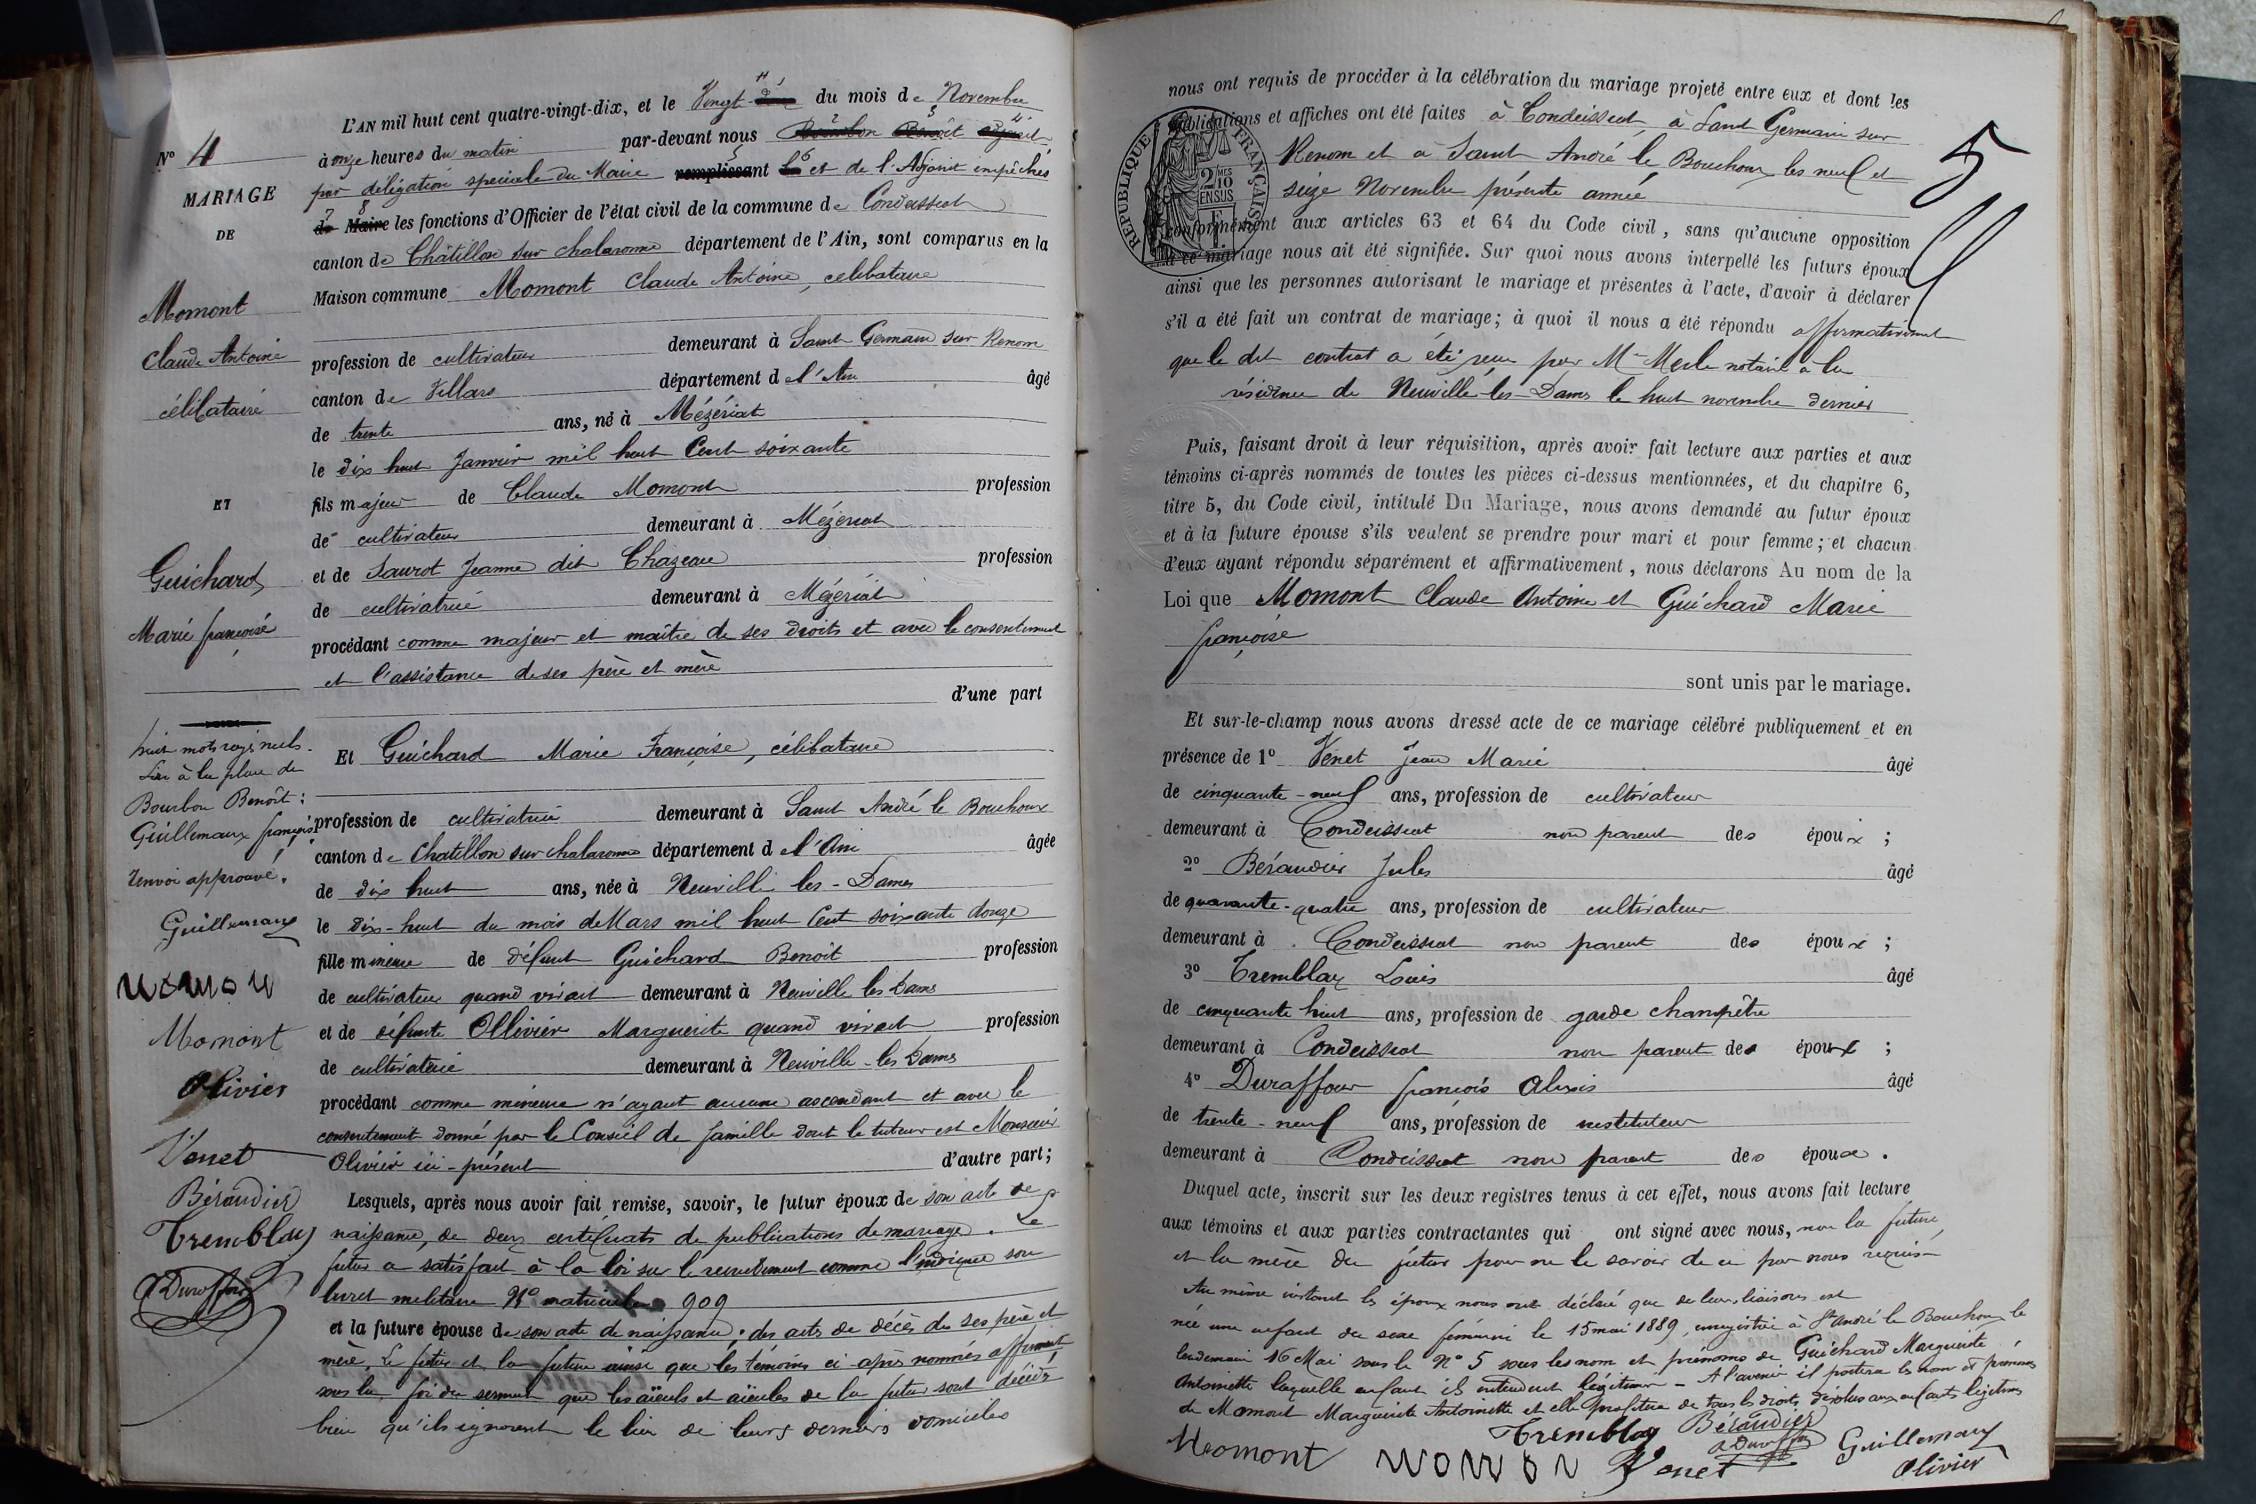 L'AN mil huit cent quatre-vingt-dix, et le Vingt du mois de Novembre
N° 4
à onze heures du matin par-devant nous Bourbon Benoît adjoint
par délégation speciale du Maire remplissant et de l'Adjoint impêchés
MARIAGE
DE
de Maire les fonctions d'Officier de l'état civil de la commune de Condeissiat
canton de Châtillon sur chalaronne département de l'Ain, sont comparus en la
Maison commune Momont Claude Antoine, celibataire
Momont
Claude Antoine
célibataire
profession de cultivateur demeurant à Saint Germain sur Renom
canton de Villars département de l'Ain âgé
de trente ans, né à Mézériat
le dix huit Janvier mil huit Cent soixante
fils majeur de Claude Momont profession
de cultivateur demeurant à Mézériat
et de Saurot Jeanne dit Chazeau profession
de cultivatrice demeurant à Mézériat
procédant comme majeur et maître de ses droits et avec le consentement
et l'assistance de ses père et mère
d'une part
ET
Guichard
Marie françoise
huit mots rayés nuls.
Lire à la place de
Bourbon Benoît :
Guillemaux françois
Renvoi approuvé.
Guillemaux
Momon
Momont
Olivier
Venet
Béraudier
Tremblay
ADuraffour
Et Guichard Marie Françoise, célibataire
profession de cultivatrice demeurant à Saint André le Bouchoux
canton de Chatillon sur chalaronne département de l'Ain âgée
de dix huit ans, née à Neuville les-Dames
le dix-huit du mois de Mars mil huit Cent soixante douze
fille mineure de défunt Guichard Benoît profession
de cultivateur quand vivait demeurant à Neuville les Dames
et de défunte Ollivier Marguerite quand vivait profession
de cultivatrice demeurant à Neuville-les Dames
procédant comme mineure n'ayant aucune ascendant et avec le
consentement donné par le Conseil de famille dont le tuteur est Monsieur
Olivier ici-présent d'autre part;
Lesquels, après nous avoir fait remise, savoir, le futur époux de son acte de
naissance, de deux certificats de publications de mariage. Le
futur a satisfait à la loi sur le recrutement comme l'indique son
livret militaire N° matricule 909
et la future épouse de son acte de naissance, des actes de décès des ses père et
mère. Le futur et la future ainsi que les témoins ci-après nommés affirment
sous la foi du serment que les aïeuls et aïeules de la future sont décédés
bien qu'ils ignorent le lieu de leurs derniers domiciles
5
nous ont requis de procéder à la célébration du mariage projeté entre eux et dont les
publications et affiches ont été faites à Condeissiat à Saint Germain sur
Renom et à Saint André le Bouchoux les neuf et
seize Novembre présente année
RÉPUBLIQUE FRANÇAISE
2 MES
10
EN SUS
conformément aux articles 63 et 64 du Code civil, sans qu'aucune opposition
à ce mariage nous ait été signifiée. Sur quoi nous avons interpellé les futurs époux
ainsi que les personnes autorisant le mariage et présentes à l'acte, d'avoir à déclarer
s'il a été fait un contrat de mariage; à quoi il nous a été répondu affirmativement
que le dit contrat a été reçu par Me Merle notaire à la
résidence de Neuville-les-Dames le huit novembre dernier
Puis, faisant droit à leur réquisition, après avoir fait lecture aux parties et aux
témoins ci-après nommés de toutes les pièces ci-dessus mentionnées, et du chapitre 6,
titre 5, du Code civil, intitulé Du Mariage, nous avons demandé au futur époux
et à la future épouse s'ils veulent se prendre pour mari et pour femme; et chacun
d'eux ayant répondu séparément et affirmativement, nous déclarons Au nom de la
Loi que Momont Claude Antoine et Guichard Marie
françoise
sont unis par le mariage.
Et sur-le-champ nous avons dressé acte de ce mariage célébré publiquement et en
présence de 1° Venet Jean Marie âgé
de cinquante-neuf ans, profession de cultivateur
demeurant à Condeissiat non parent des époux ;
2° Béraudier Jules âgé
de quarante-quatre ans, profession de cultivateur
demeurant à Condeissiat non parent des époux ;
3° Tremblay Louis âgé
de cinquante huit ans, profession de garde champêtre
demeurant à Condeissiat non parent des époux ;
4° Duraffour françois Alexis âgé
de trente-neuf ans, profession de instituteur
demeurant à Condeissiat non parent des époux .
Duquel acte, inscrit sur les deux registres tenus à cet effet, nous avons fait lecture
aux témoins et aux parties contractantes qui ont signé avec nous, non la future
et la mère du futur pour ne le savoir de ce par nous requis
Au même instant les époux nous ont déclaré que de leurs liaisons est
née une enfant du sexe féminin le 15 mai 1889, enregistrée à St André le Bouchoux le
lendemain 16 Mai sous le N° 5 sous les nom et prénoms de Guichard Marguerite
Antoinette laquelle enfant ils entendent légitimer - A l'avenir il portera les nom et prénoms
de Momont Marguerite Antoinette et elle profitera de tous les droits dévolus aux enfants légitimes
Tremblay Béraudier
ADuraffour Guillemaux
Momont Momon Venet Olivier